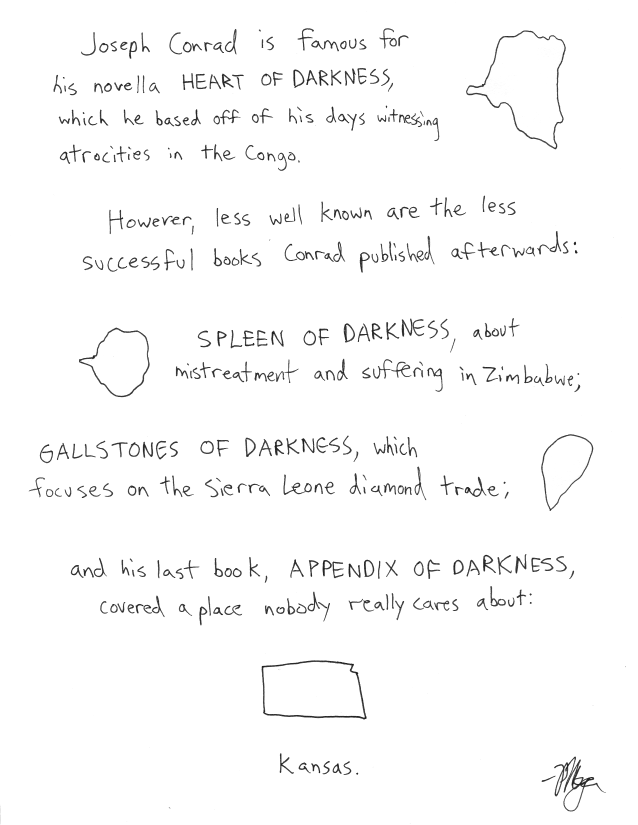 Joseph Conrad is famous for
his novella HEART OF DARKNESS,
which he based off of his days witnessing
atrocities in the Congo.
However, less well known are the less
successful books Conrad published afterwards:
SPLEEN OF DARKNESS, about
mistreatment and suffering in Zimbabwe;
GALLSTONES OF DARKNESS, which
focuses on the Sierra Leone diamond trade;
and his last book, APPENDIX OF DARKNESS,
covered a place nobody really cares about:
Kansas.